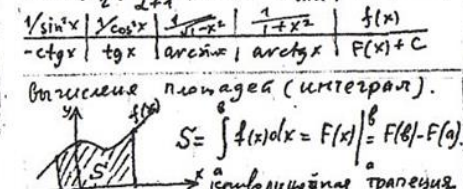 1/sin²x | 1/cos²x | 1/√1-x² | 1/1+x² | f(x)
-ctgx | tgx | arcsinx | arctgx | F(x)+C
вычисления площадей (интеграл).
y f(x)
S = ∫ₐᵇ f(x)dx = F(x)|ₐᵇ = F(b)-F(a).
S x криволинейная трапеция